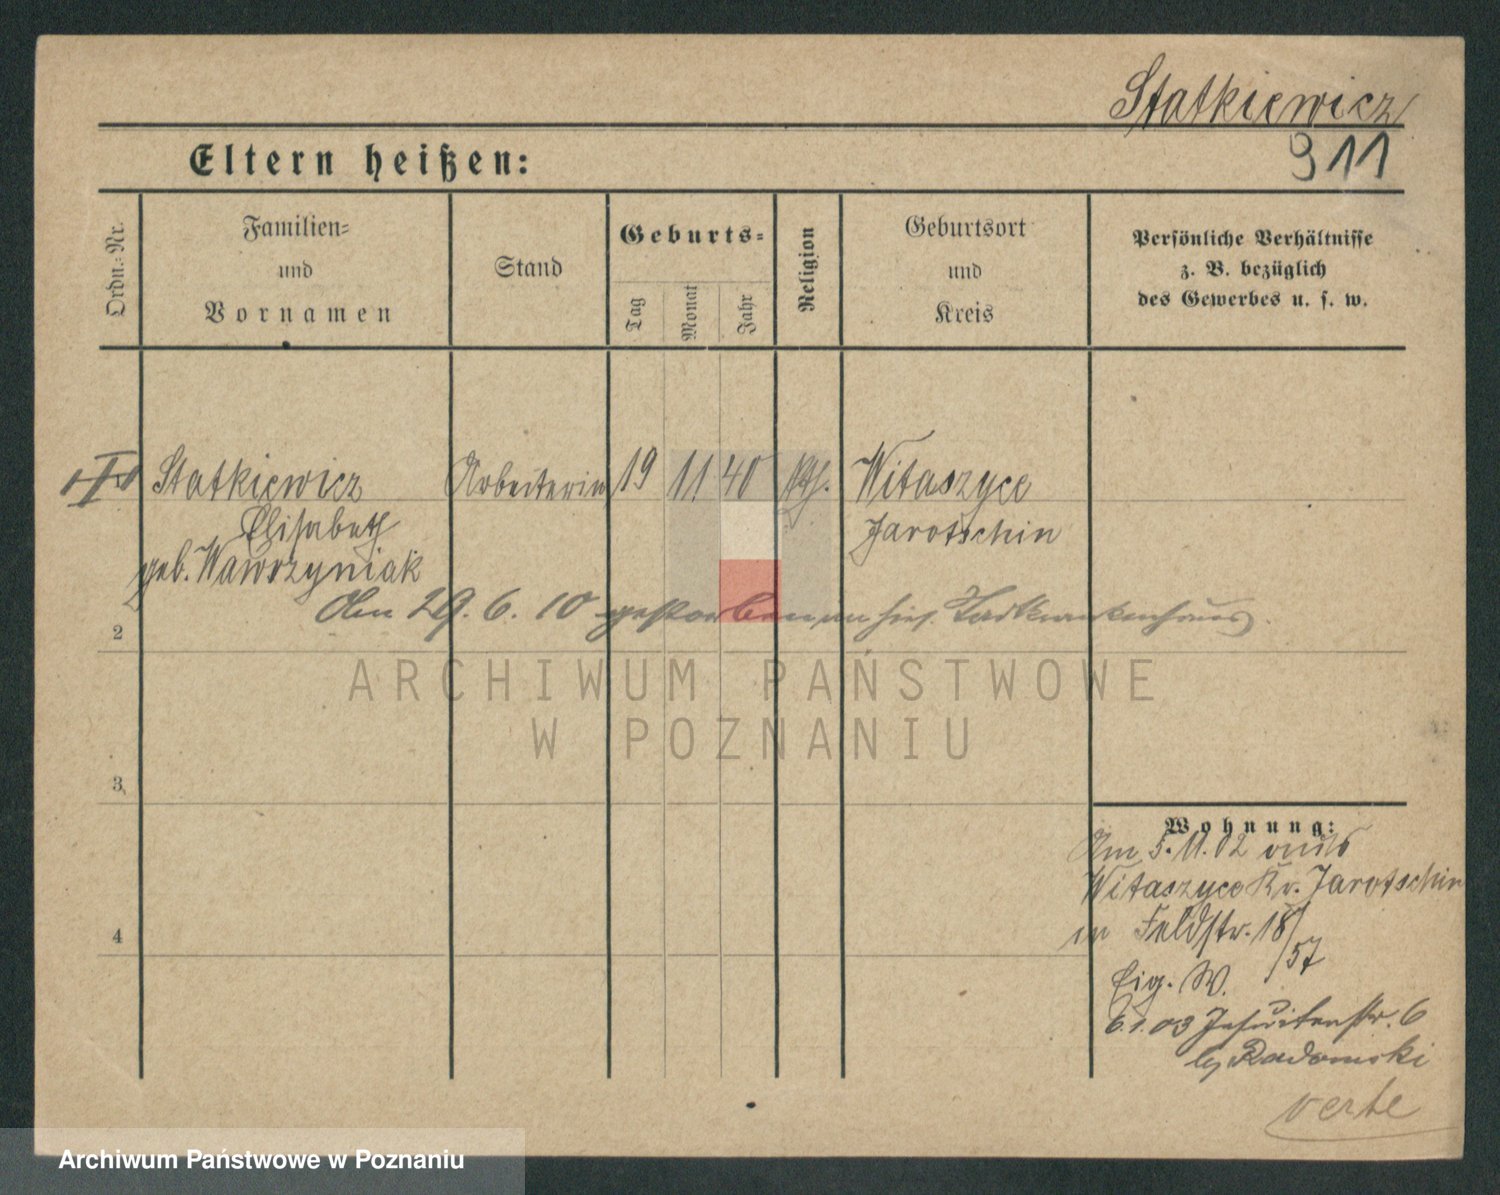 Statkiewicz
911
Eltern heißen:
Ordn.-Nr.
Familien-
und
Vornamen
Stand
Geburts-
Tag
Monat
Jahr
Religion
Geburtsort
und
Kreis
Persönliche Verhältnisse
z. B. bezüglich
des Gewerbes u. s. w.
Statkiewicz Arbeiterin 19 11 40 kth. Witaszyce
Elisabeth Jarotschin
geb. Wawrzyniak
Am 29.6.10 gestorben im hies. Stadtkrankenhaus.
2
3
4
ARCHIWUM PAŃSTWOWE
W POZNANIU
Wohnung:
Am 5.11.02 aus
Witaszyce Kr. Jarotschin
in Feldstr. 18/
/57
Eig. W.
6.1.03 Jesuitenstr. 6
Radomski
verte
Archiwum Państwowe w Poznaniu